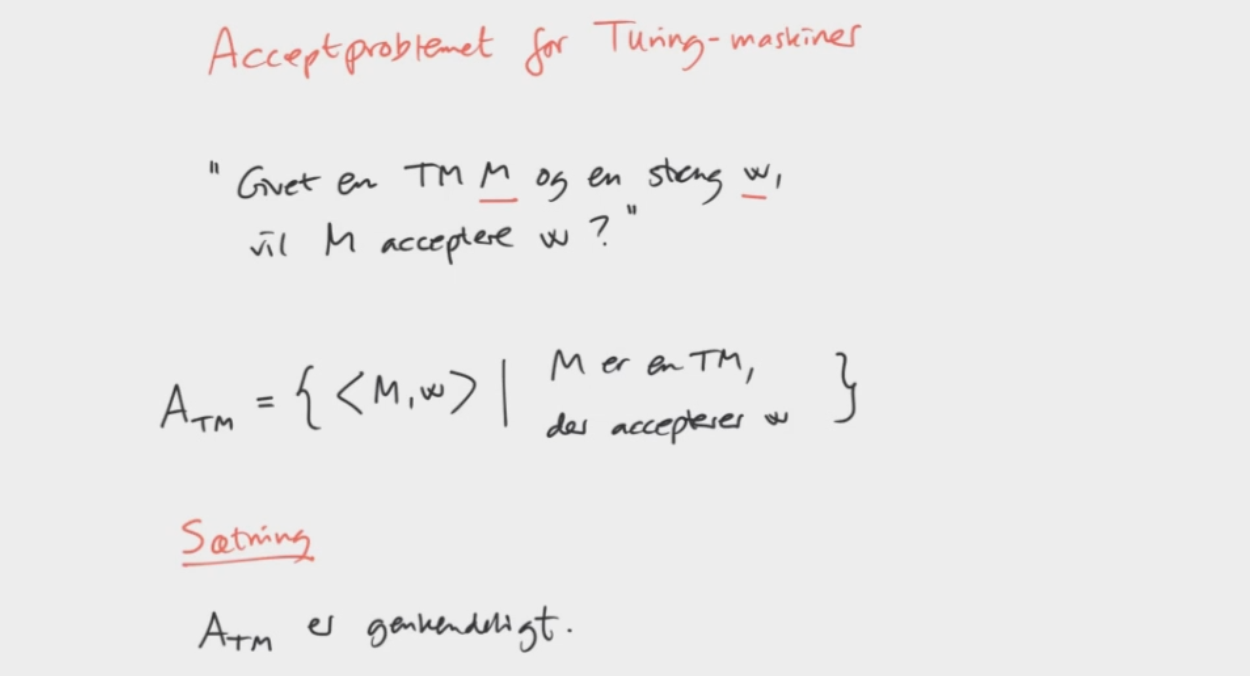 Acceptproblemet for Turing-maskiner
"Givet en TM M og en streng w,
vil M acceptere w?"
A_TM = { <M,w> | M er en TM,
der accepterer w }
Sætning
A_TM er genkendeligt.